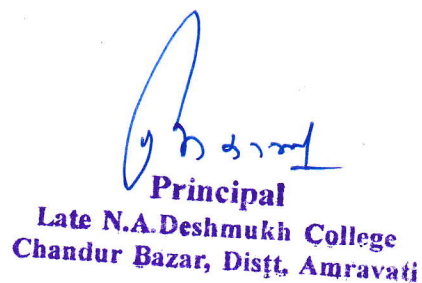 Principal
Late N.A.Deshmukh College
Chandur Bazar, Distt. Amravati